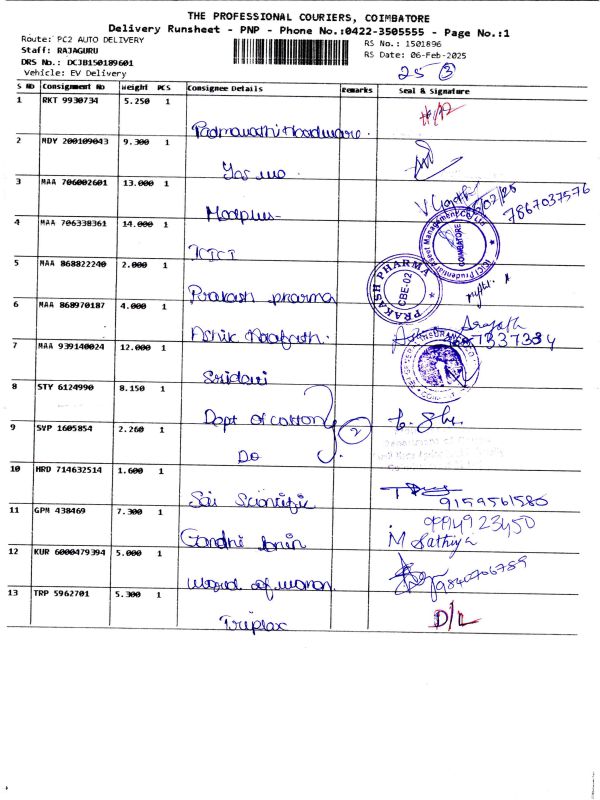 THE PROFESSIONAL COURIERS, COIMBATORE
Delivery Runsheet - PNP - Phone No.:0422-3505555 - Page No.:1
Route: PC2 AUTO DELIVERY
RS No.: 1501896
Staff: RAJAGURU
RS Date: 06-Feb-2025
DRS No.: DCJB150189601
Vehicle: EV Delivery
25 3
S No Consignment No Weight PCS Consignee Details Remarks Seal & Signature
1 RKT 9930734 5.250 1
Padmavathi Hardware.
2 MDY 200109043 9.300 1
3 MAA 706002601 13.000 1
Medplus
7867037576
4 MAA 706338361 14.000 1
ICICI
ICICI Prudential Asset Management Co. Ltd
COIMBATORE
5 MAA 868822240 2.000 1
Prakash pharma
PRAKASH PHARMA
CBE-02
6 MAA 868970187 4.000 1
7 MAA 939140024 12.000 1
Sridevi
8 STY 6124990 8.150 1
Dept of cotton
9 SVP 1605854 2.260 1
Do
2
10 HRD 714632514 1.600 1
Sai Scientific
9159561580
11 GPM 438469 7.300 1
09949 23450
M Sathiya
12 KUR 6000479394 5.000 1
9840706789
13 TRP 5962701 5.300 1
Triplax
D/L